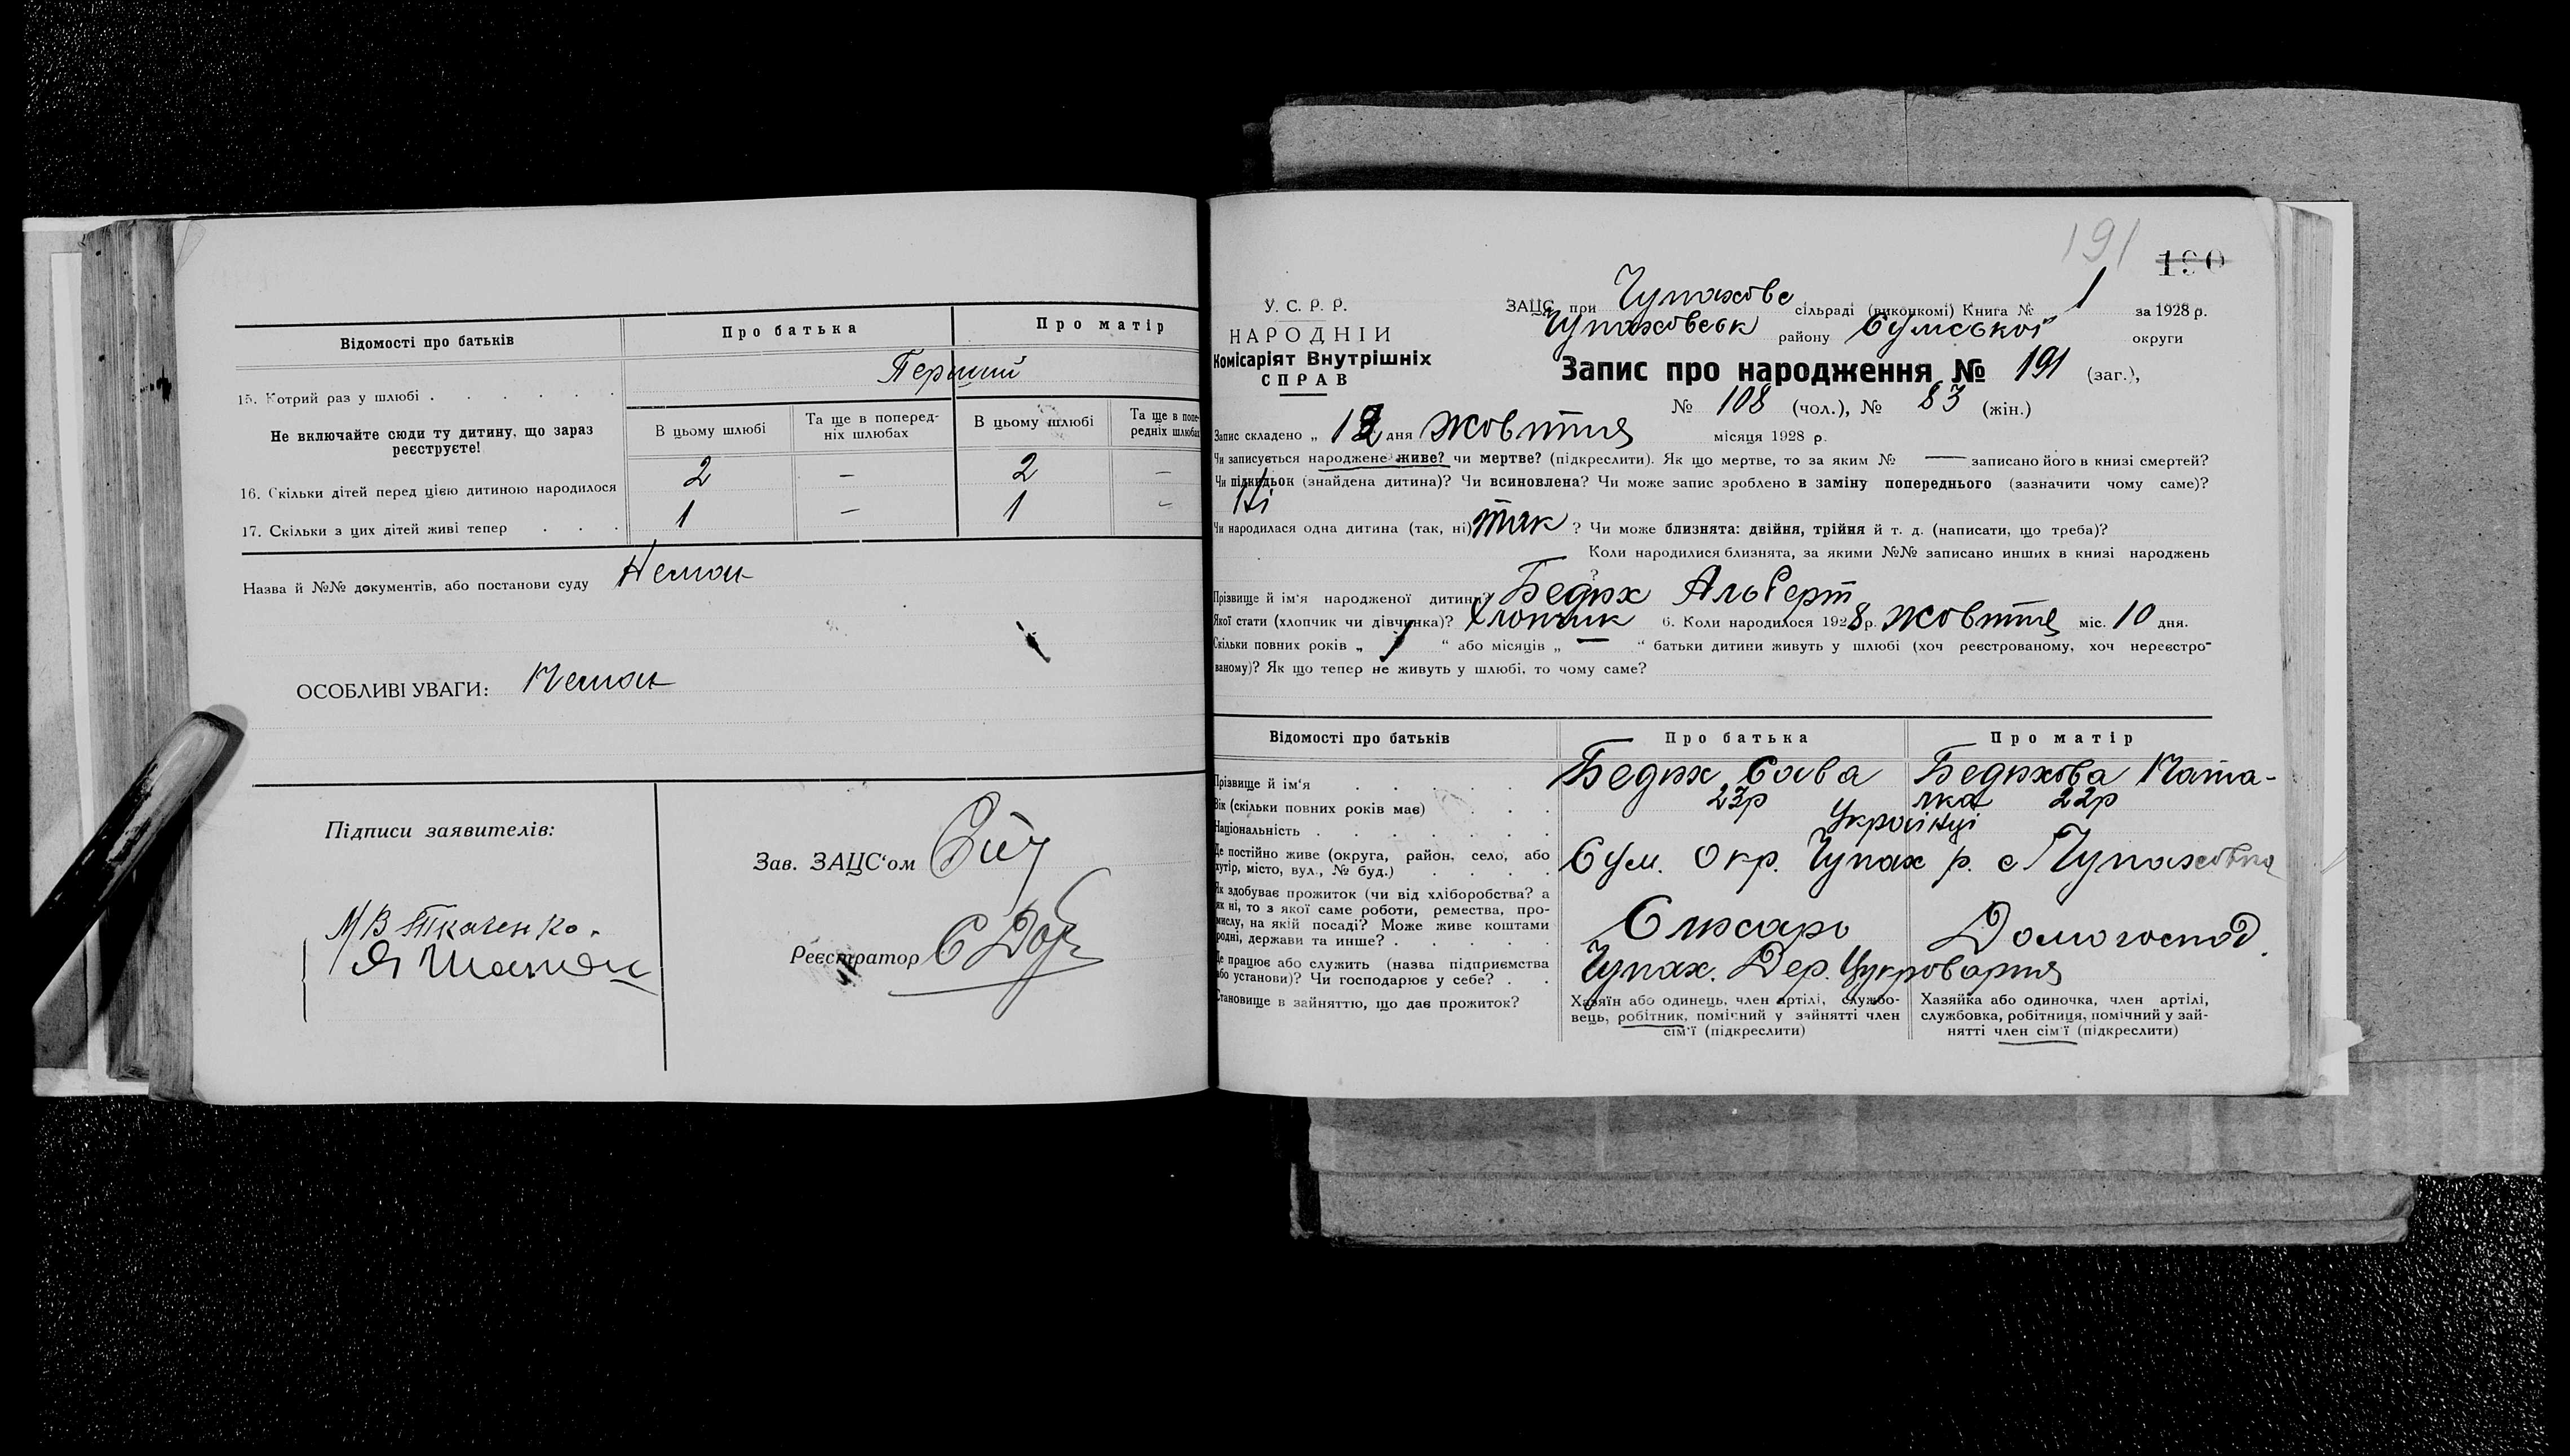 Відомості про батьків
Про батька
Про матір
15. Котрий раз у шлюбі
Перший
Не включайте сюди ту дитину, що зараз реєструєте!
В цьому шлюбі
Та ще в поперед-
ніх шлюбах
В цьому шлюбі
Та ще в попе-
редніх шлюбах
16. Скільки дітей перед цією дитиною народилося 2 — 2 —
17. Скільки з цих дітей живі тепер 1 — 1 -
Назва й №№ документів, або постанови суду Немає
ОСОБЛИВІ УВАГИ: Немає
Підписи заявителів:
М В Ткаченко.
Зав. ЗАЦС'ом
Реєстратор
191
190
У. С. Р. Р.
НАРОДНІЙ
Комісаріят Внутрішніх
СПРАВ
ЗАЦС при Чупахове сільраді (виконкомі) Книга № 1 за 1928 р.
Чупаховськ району Сумської округи
Запис про народження № 191 (заг.),
№ 108 (чол.), № 83 (жін.)
Запис складено „ 12 дня жовтня місяця 1928 р.
Чи записується народжене живе? чи мертве? (підкреслити). Як що мертве, то за яким № — записано його в книзі смертей?
Чи підкидьок (знайдена дитина)? Чи всиновлена? Чи може запис зроблено в заміну попереднього (зазначити чому саме)?
Ні
Чи народилася одна дитина (так, ні) так ? Чи може близнята: двійня, трійня й т. д. (написати, що треба)?
Коли народилися близнята, за якими №№ записано инших в книзі народжень
?
Прізвище й ім'я народженої дитини? Бедюх Альберт
Якої стати (хлопчик чи дівчинка)? Хлопчик 6. Коли народилося 1928 р. жовтня міс. 10 дня.
Скільки повних років „ “ або місяців „ — “ батьки дитини живуть у шлюбі (хоч реєстрованому, хоч нереєстро-
ваному)? Як що тепер не живуть у шлюбі, то чому саме?
Відомості про батьків
Про батька
Про матір
Прізвище й ім'я Бедюх Сава Бедюхова Ната-
Вік (скільки повних років має) 23р лка 22р
Національність Українці
Де постійно живе (округа, район, село, або
хутір, місто, вул., № буд.) Сум. Окр. Чупах р. с Чупаховка
Як здобуває прожиток (чи від хліборобства? а
як ні, то з якої саме роботи, ремества, про-
мислу, на якій посаді? Може живе коштами
родні, держави та инше?
Слюсарь
Домогоспод.
Де працює або служить (назва підприємства
або установи)? Чи господарює у себе?
Чупах. Дер. Цукроварня
Становище в зайняттю, що дає прожиток?
Хазяїн або одинець, член артілі, службо-
вець, робітник, помічний у зайнятті член
сім'ї (підкреслити)
Хазяйка або одиночка, член артілі,
службовка, робітниця, помічний у зай-
нятті член сім'ї (підкреслити)